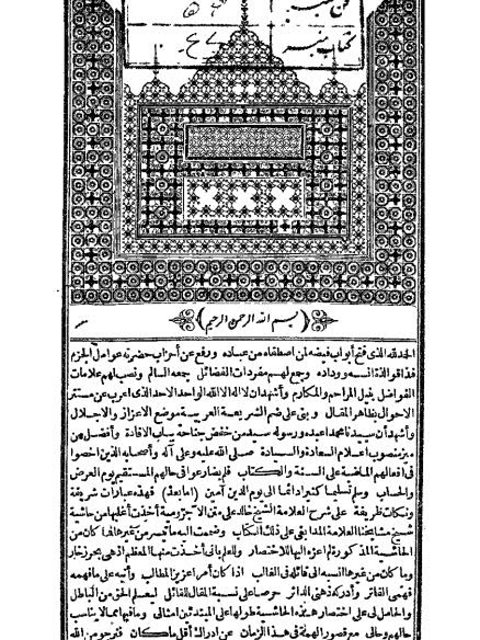 فن نمبر
كتاب نمبر
﴿بسم الله الرحمن الرحيم﴾
الحمد لله الذى فتح أبواب فيضه لمن اصطفاه من عباده ورفع عن أحزاب حضرته عوامل الجزم
فذاقوا لذة انسه ووداده وجمع لهم مفردات الفضائل جمعه السالم ونصب لهم علامات
الفواضل بنيل المراحم والمكارم وأشهد ان لا اله الا الله الواحد الاحد الذى اعرب عن مستتر
الاحوال بظاهر المقال وبنى على ضم الشريعة العربية موضع الاعزاز والاجلال
وأشهد أن سيدنا محمدا عبده ورسوله سيد من خفض جناحه بباب الافادة وأفضل من
ميز منصوب اعلام السعادة والسيادة صلى الله عليه وعلى آله وأصحابه الذين اخصوا
فى افعالهم الماضية على السنة والكتاب فلم يضارعوا فى حالهم المستقيم يوم العرض
والحساب وسلم تسليما كثيرا دائما الى يوم الدين آمين (اما بعد) فهذه عبارات شريفة
ونكات ظريفة على شرح العلامة الشيخ خالد على متن الآجرومية أخذت أغلبها من حاشية
شيخ مشايخنا العلامة المدابغى على ذلك الكتاب وضممت اليه ما تيسر من غيرها فما كان من
الحاشية المذكورة لم اعزه اليها للاختصار وللعلم بانى أخذت منها المعظم اذ هى بحر زخار
وما كان من غيرها انسبه الى قائله فى الغالب اذا كان أمرا عزيز المطالب وأنبه على ما فهمه
فهمى الفاتر وأدركه ذهنى الدائر حرصا على نسبة المقال للقائل ليعلم الحق من الباطل
والحامل لى على اختصار هذه الحاشية طولها على المبتدئين امثالى وما فيها مما لا يناسب
حالهم وحالى مع قصور الهمة فى هذا الزمان عن ادراك أقل ما كان فنرجو من الله